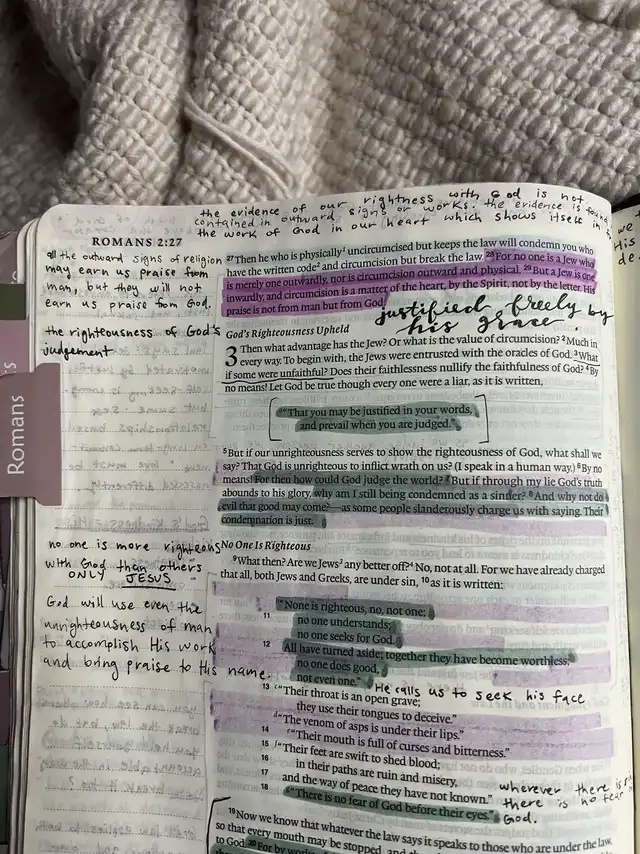 the evidence of our rightness with God is not
contained in outward signs or works. the evidence is found in
the work of God in our heart which shows itself in
ROMANS 2:27
all the outward signs of religion
may earn us praise from
man, but they will not
earn us praise from God.
the righteousness of God's
judgement
27 Then he who is physically¹ uncircumcised but keeps the law will condemn you who
have the written code² and circumcision but break the law. 28 For no one is a Jew who
is merely one outwardly, nor is circumcision outward and physical. 29 But a Jew is one
inwardly, and circumcision is a matter of the heart, by the Spirit, not by the letter. His
praise is not from man but from God.
justified freely by
his grace.
God's Righteousness Upheld
3 Then what advantage has the Jew? Or what is the value of circumcision? 2 Much in
every way. To begin with, the Jews were entrusted with the oracles of God. 3 What
if some were unfaithful? Does their faithlessness nullify the faithfulness of God? 4 By
no means! Let God be true though every one were a liar, as it is written,
"That you may be justified in your words,
and prevail when you are judged."
5 But if our unrighteousness serves to show the righteousness of God, what shall we
say? That God is unrighteous to inflict wrath on us? (I speak in a human way.) 6 By no
means! For then how could God judge the world? 7 But if through my lie God's truth
abounds to his glory, why am I still being condemned as a sinner? 8 And why not do
evil that good may come?—as some people slanderously charge us with saying. Their
condemnation is just.
Romans
no one is more righteous
with God than others
ONLY JESUS
God will use even the
unrighteousness of man
to accomplish His work
and bring praise to His name.
No One Is Righteous
9 What then? Are we Jews³ any better off?⁴ No, not at all. For we have already charged
that all, both Jews and Greeks, are under sin, 10 as it is written:
"None is righteous, no, not one;
11 no one understands;
no one seeks for God.
12 All have turned aside; together they have become worthless;
no one does good,
not even one."
He calls us to seek his face
13 "Their throat is an open grave;
they use their tongues to deceive."
"The venom of asps is under their lips."
14 "Their mouth is full of curses and bitterness."
15 "Their feet are swift to shed blood;
16 in their paths are ruin and misery,
17 and the way of peace they have not known."
18 "There is no fear of God before their eyes."
wherever there is
there is no fear
God.
19 Now we know that whatever the law says it speaks to those who are under the law,
so that every mouth may be stopped, and the
to God. 20 For by works
we
his
de.